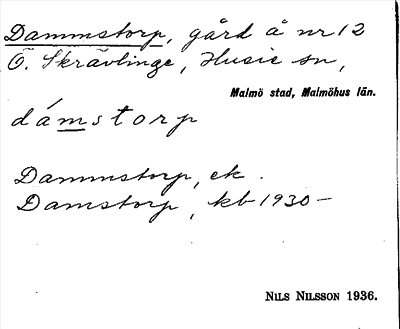 Dammstorp, gård å nr 12
Ö. Skrävlinge, Husie sn,
Malmö stad, Malmöhus län.
dámstorp
Dammstorp, ek.
Damstorp, kb 1930-
NILS NILSSON 1936.